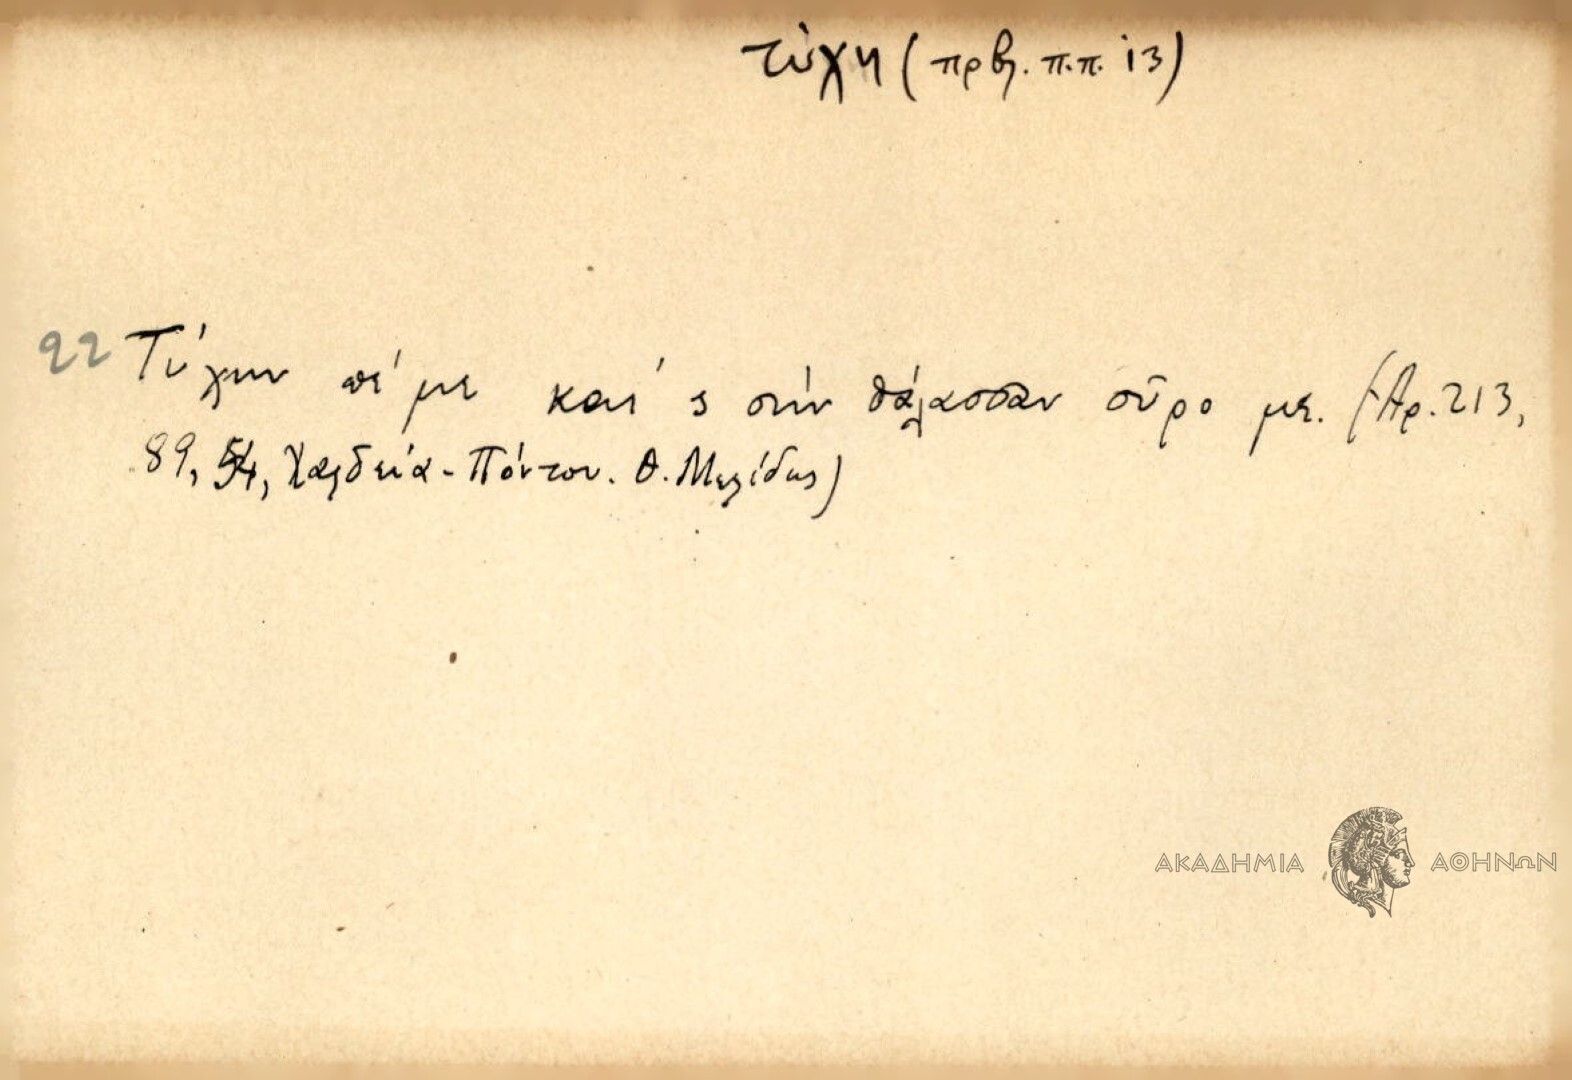 τύχη (πρβλ. π.π. 13)
22 Τύχην πέ με και 'ς σήν θάλασσαν σῦρο με. (Ἀρ. 213,
89, 54, Χαλδεία - Πόντου. Θ. Μελίδης)
ΑΚΑΔΗΜΙΑ ΑΘΗΝΩΝ